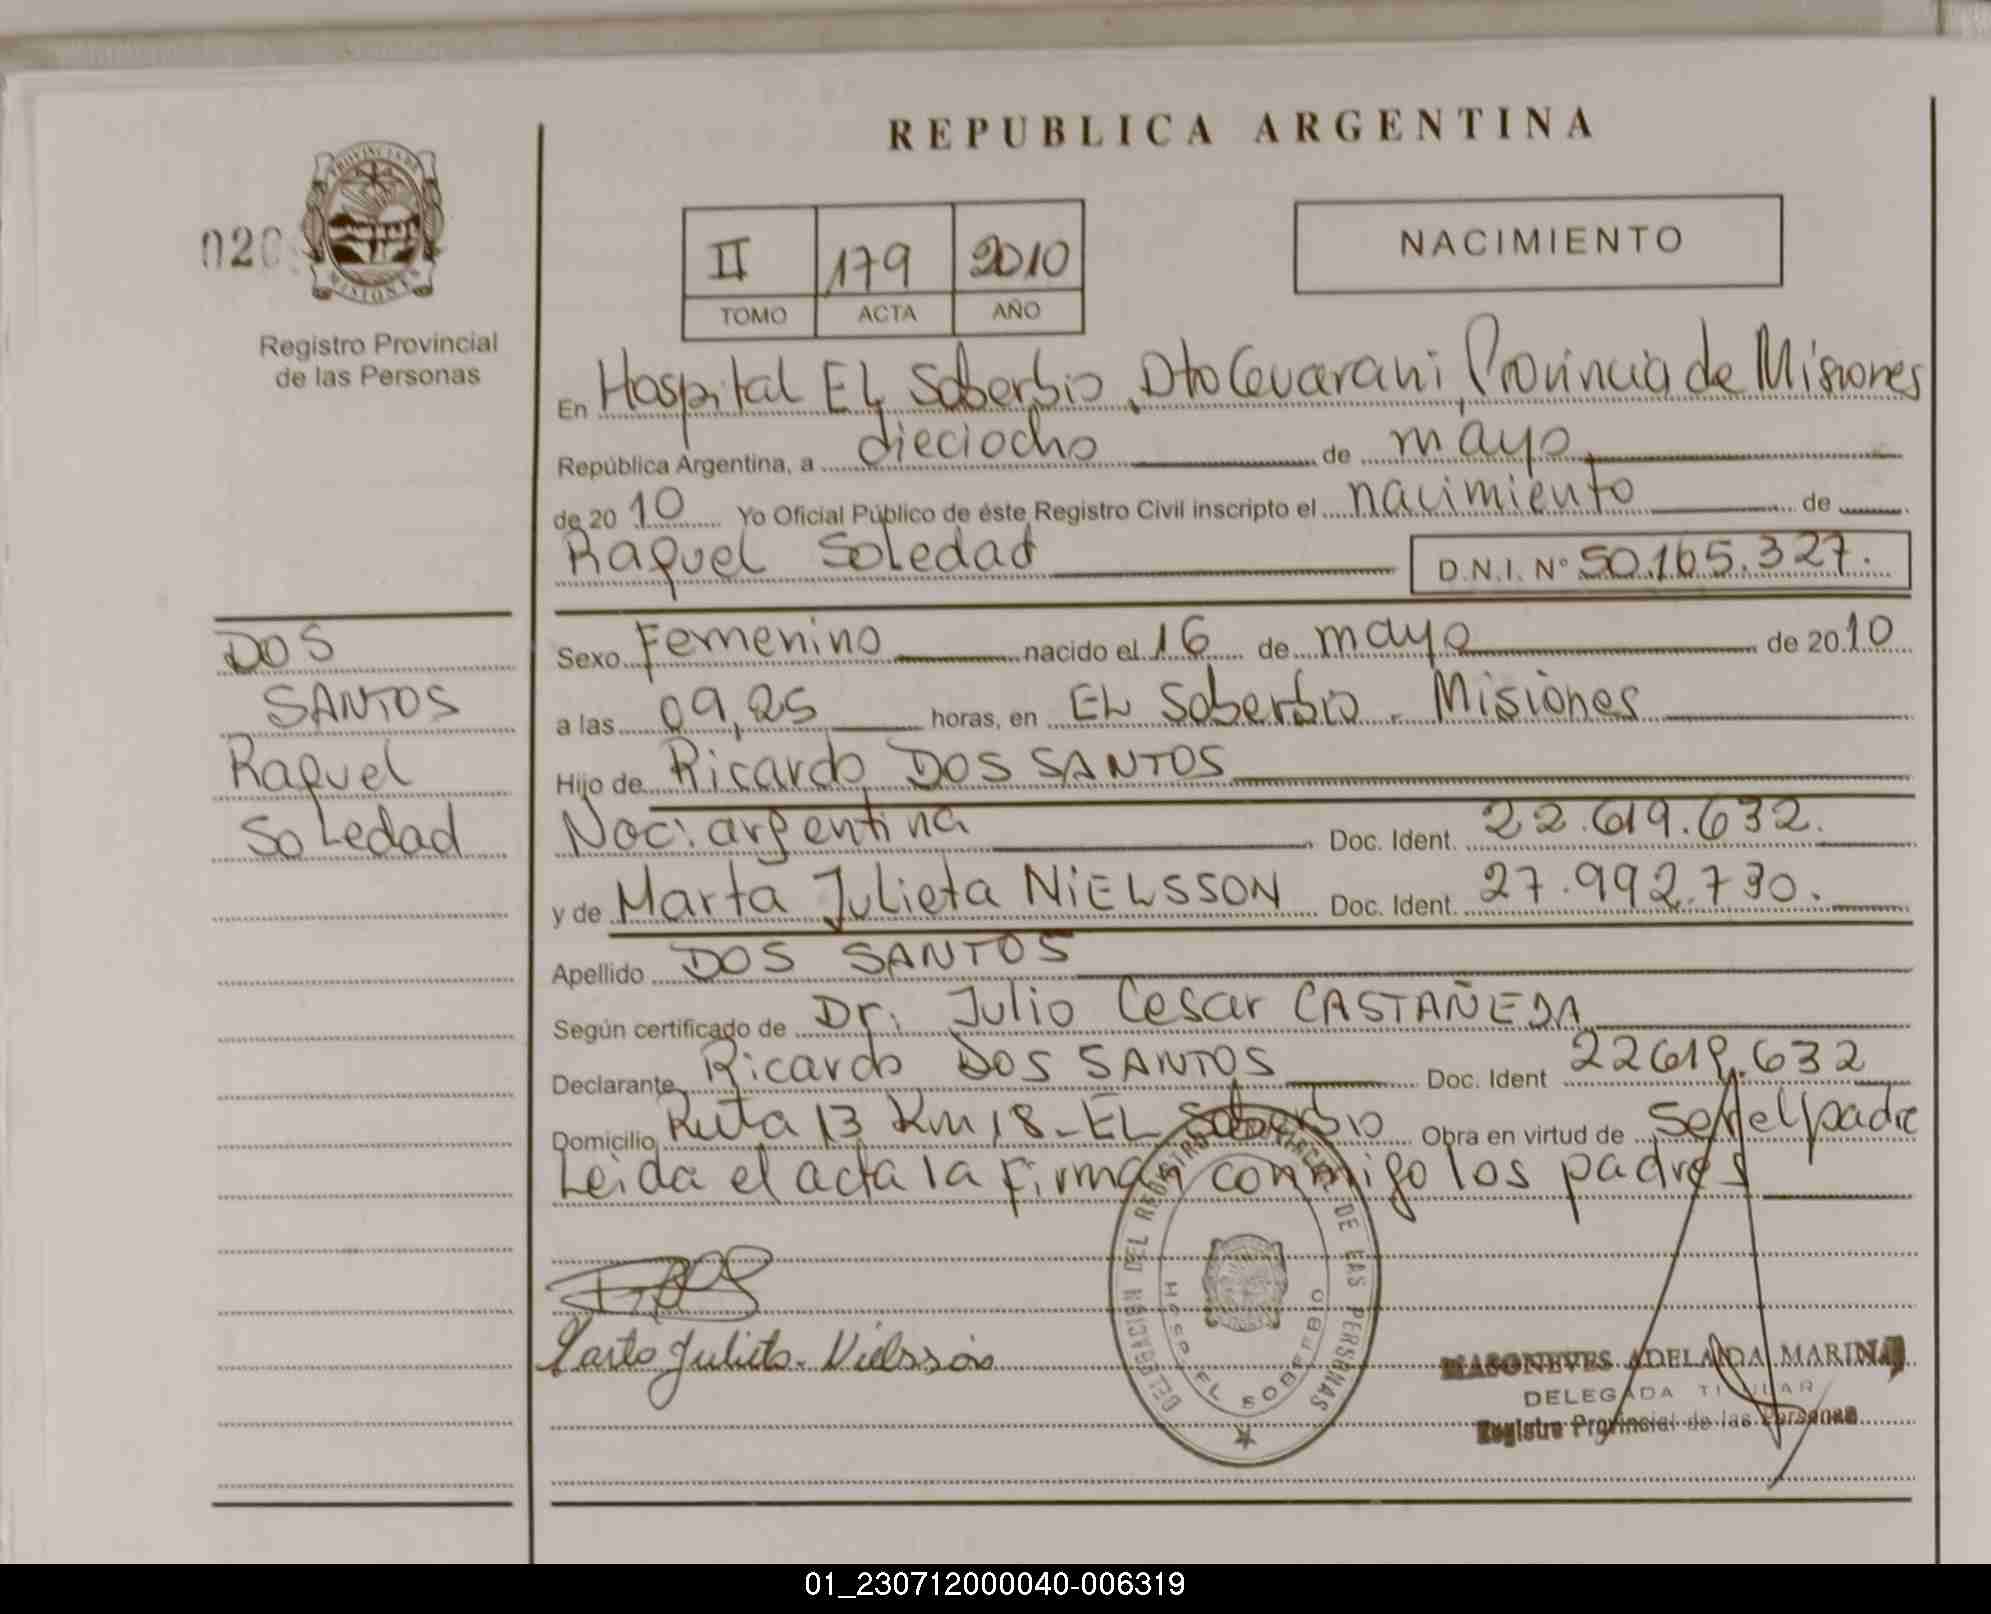 REPUBLICA ARGENTINA
PROVINCIA DE
MISIONES
020
Registro Provincial
de las Personas
II 179 2010
TOMO ACTA AÑO
NACIMIENTO
En Hospital EL Soberbio, Dto Guarani, Provincia de Misiones
República Argentina, a dieciocho de mayo
de 2010 Yo Oficial Público de éste Registro Civil inscripto el nacimiento de
Raquel Soledad D.N.I. Nº 50.165.327.
DOS
SANTOS
Raquel
Soledad
Sexo Femenino nacido el 16 de mayo de 2010
a las 09,25 horas, en EL Soberbio - Misiones
Hijo de Ricardo DOS SANTOS
Nac: argentina Doc. Ident. 22.619.632.
y de Marta Julieta NiELSSON Doc. Ident. 27.992.730.
Apellido DOS SANTOS
Según certificado de Dr. Julio Cesar CASTAÑEDA
Declarante Ricardo DOS SANTOS Doc. Ident 22619.632
Domicilio Ruta 13 Km 18 - EL Soberbio Obra en virtud de Ser el padre
Leida el acta la firman conmigo los padres
Marta Julieta Nielsson
DELEGACION DEL REGISTRO PROVINCIAL DE LAS PERSONAS
HOSP. EL SOBERBIO
MASONEVES ADELAIDA MARINA
DELEGADA TITULAR
Registro Provincial de las Personas
01_230712000040-006319